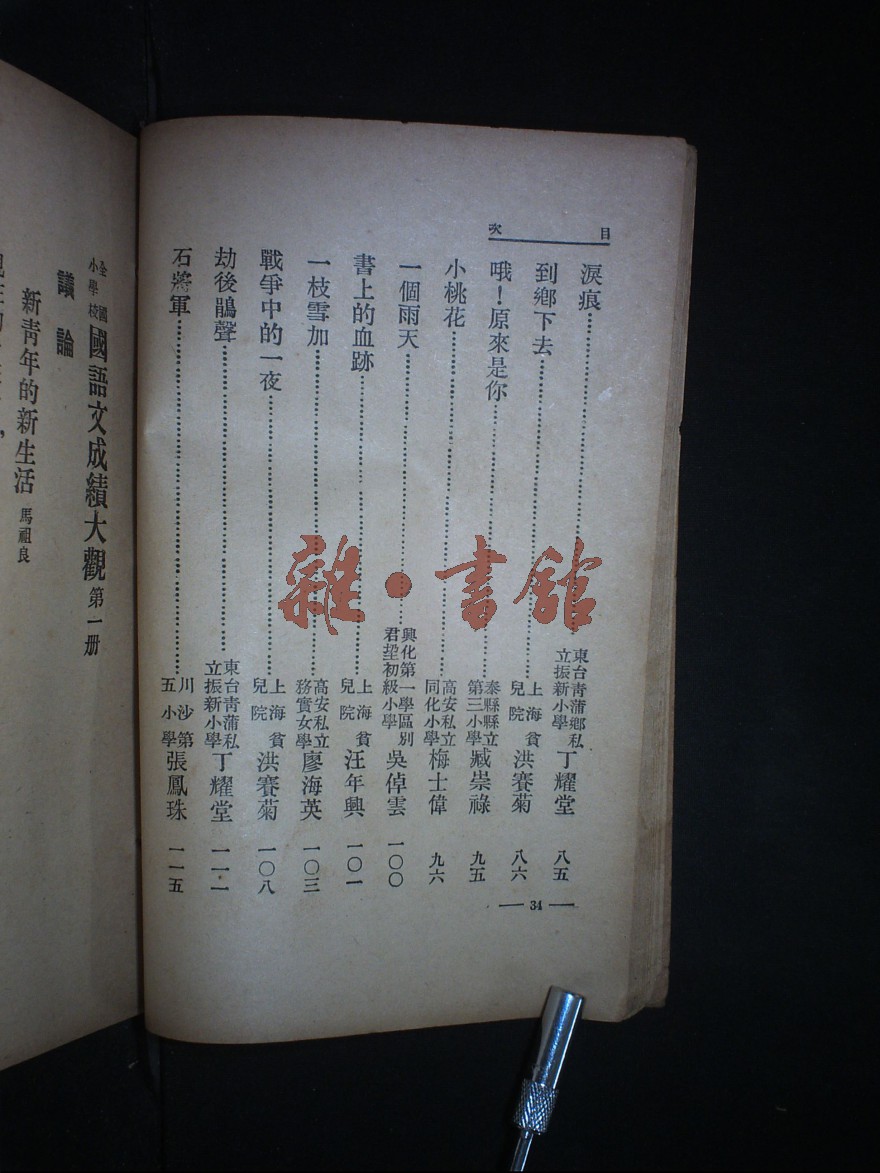 目次
淚痕 東台靑蒲鄉私立振新小學 丁耀堂 八五
到鄉下去 上海貧兒院 洪賽菊 八六
哦！原來是你 泰縣縣立第三小學 臧崇祿 九五
小桃花 高安私立同化小學 梅士偉 九六
一個雨天 興化第一學區別君望初級小學 吳倬雲 一〇〇
書上的血跡 上海貧兒院 汪年興 一〇一
一枝雪加 高安私立務實女學 廖海英 一〇三
戰爭中的一夜 上海貧兒院 洪賽菊 一〇八
劫後鵑聲 東台靑蒲私立振新小學 丁耀堂 一一一
石將軍 川沙第五小學 張鳳珠 一一五
34
全國小學校國語文成績大觀 第一册
議論
新靑年的新生活 馬祖良
雜·書館